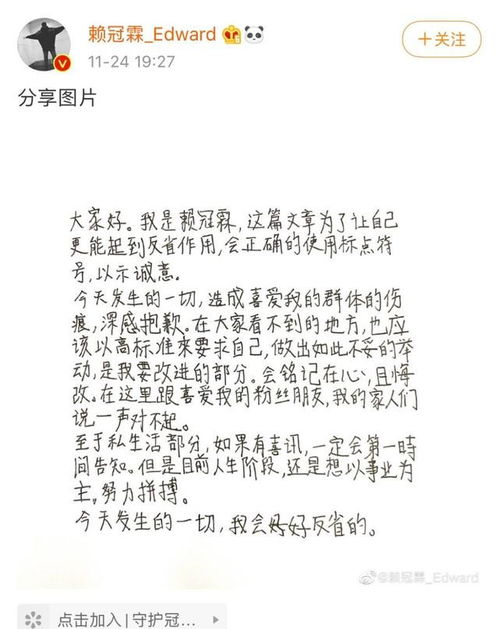 赖冠霖_Edward
+关注
11-24 19:27
分享图片
大家好。我是赖冠霖，这篇文章为了让自己
更能起到反省作用，会正确的使用标点符
号，以示诚意.
今天发生的一切，造成喜爱我的群体的伤
痕，深感抱歉。在大家看不到的地方，也应
该以高标准来要求自己，做出如此不妥的举
动，是我要改进的部分。会铭记在心，且悔
改。在这里跟喜爱我的粉丝朋友，我的家人们
说一声对不起。
至于私生活部分，如果有喜讯，一定会第一時
间告知。但是目前人生阶段，还是想以事业为
主，努力拼搏。
今天发生的一切，我会好好反省的。
@赖冠霖_Edward
点击加入 | 守护冠...